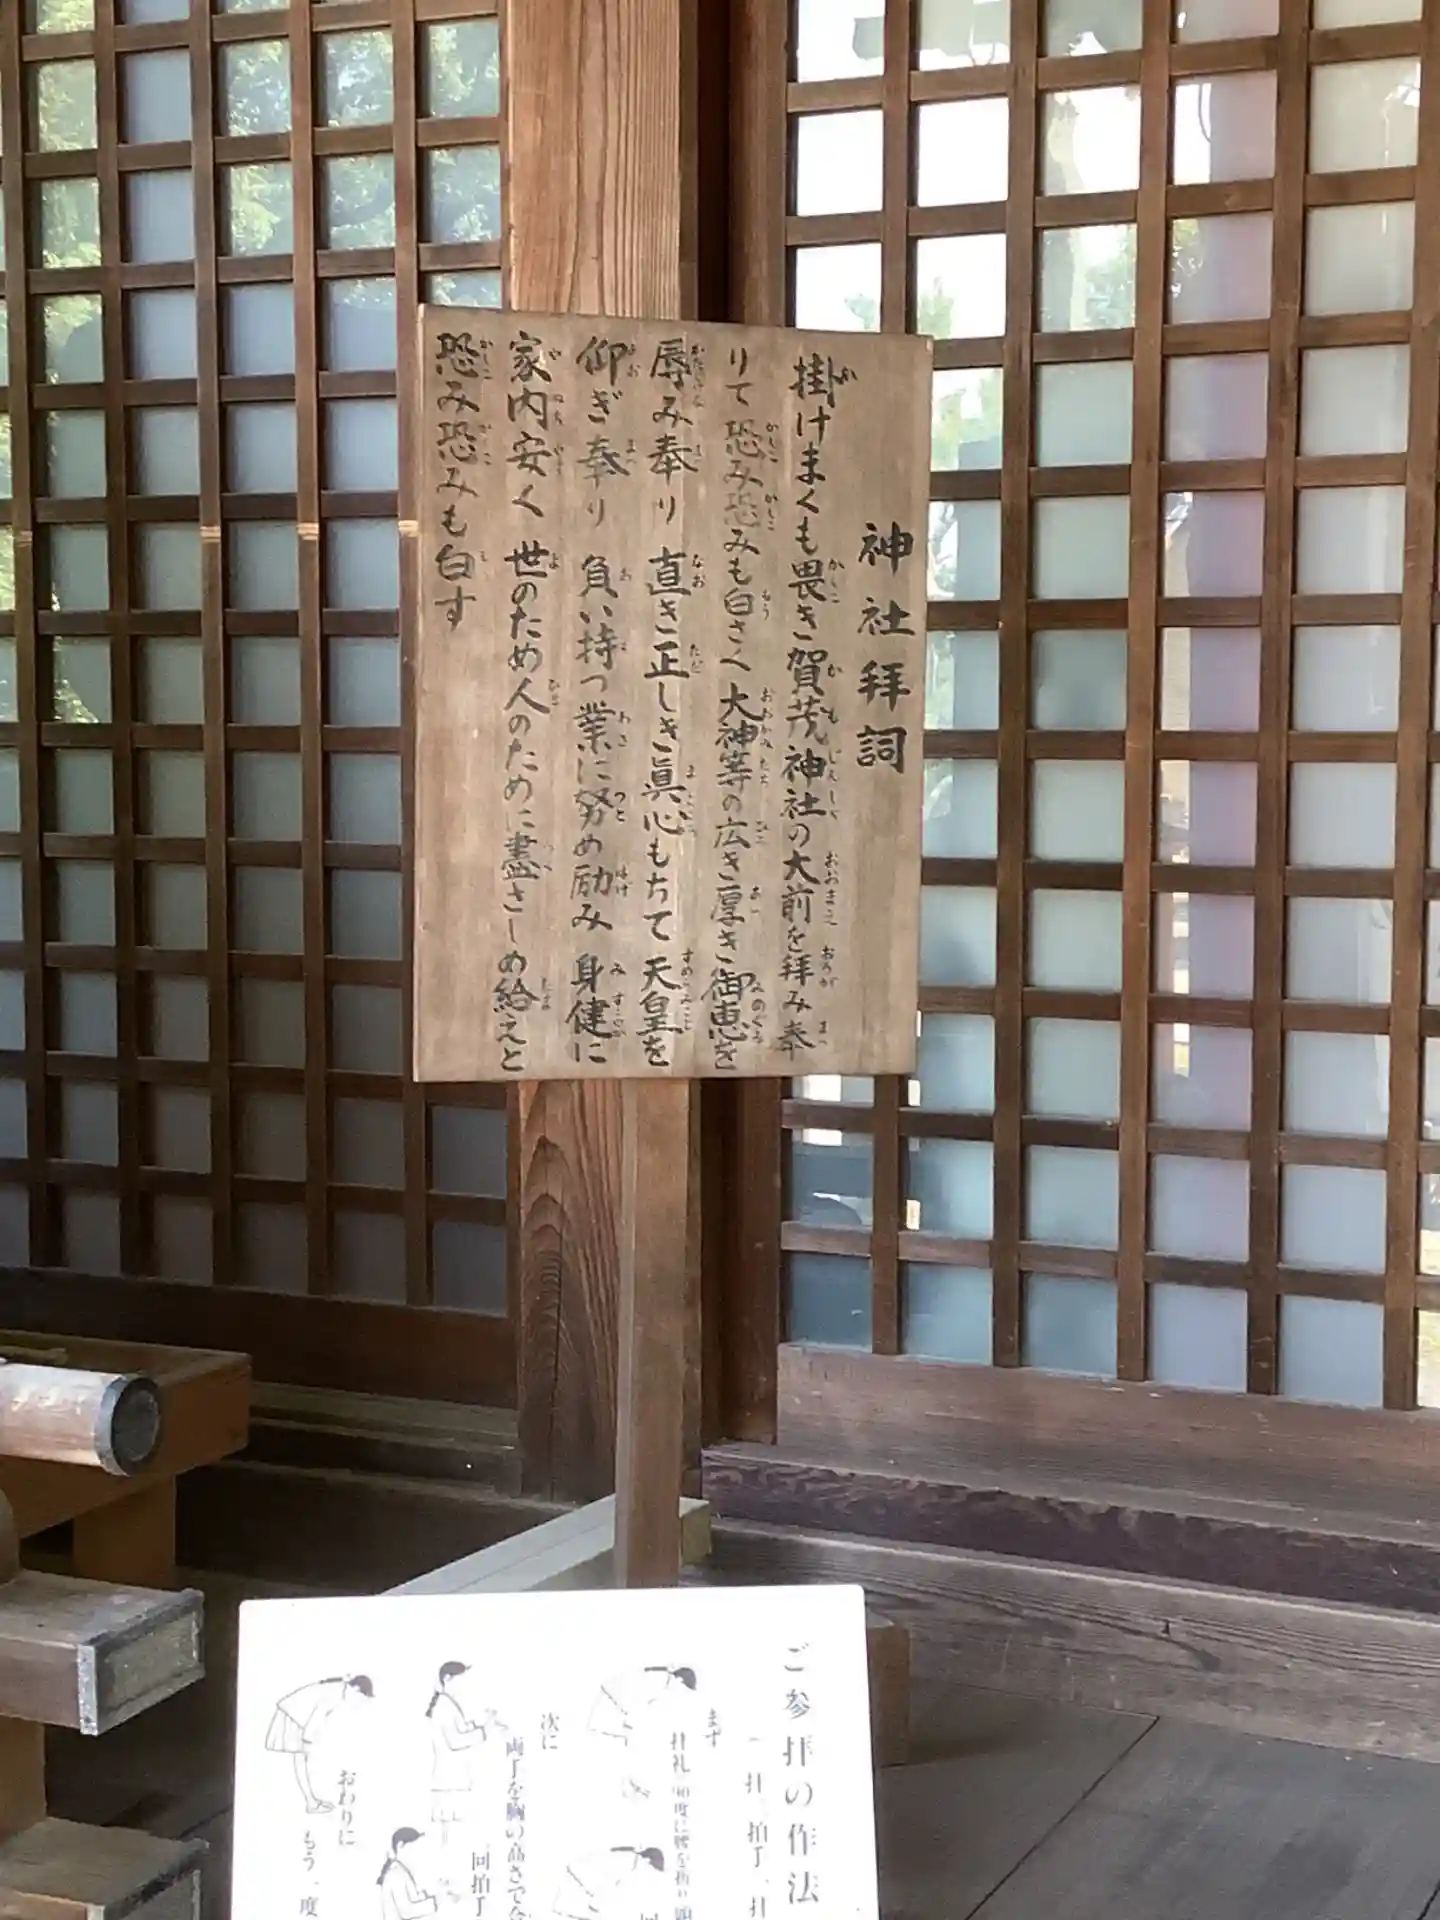 神社拝詞
掛けまくも畏き賀茂神社の大前を拝み奉
りて恐み恐みも白さく大神等の広き厚き御恵を
辱み奉り 直き正しき眞心もちて 天皇を
仰ぎ奉り 負い持つ業に努め励み 身健に
家内安く 世のため人のために盡さしめ給えと
恐み恐みも白す
ご参拝の作法
まず
次に
両手を胸の高さで合
おわりに
もう一度